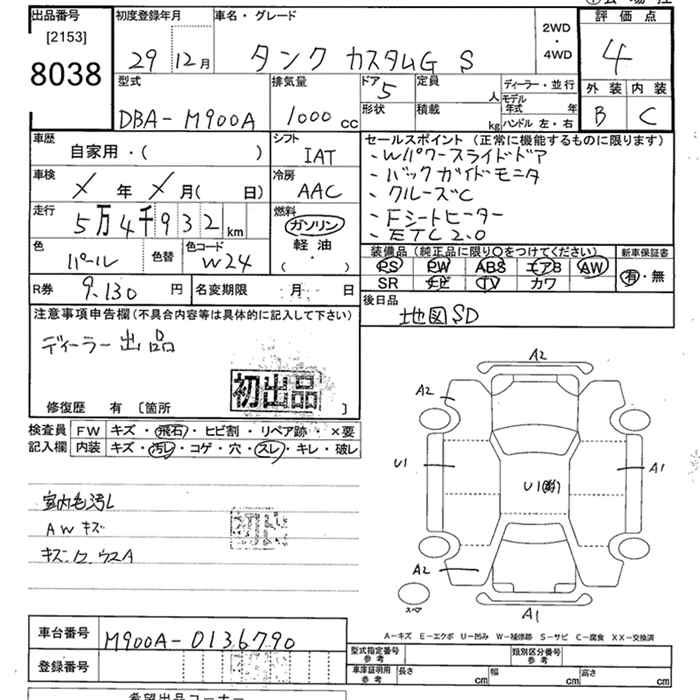 出品番号
[2153]
8038
初度登録年月
29 12月
車名・グレード
タンク カスタムG S
2WD
・
4WD
評価点
4
外装 内装
B C
型式
DBA-M900A
排気量
1000cc
ドア
5
定員
人
形状
積載
kg
ディーラー・並行
モデル年式 年
ハンドル 左・右
車歴
自家用・( )
シフト
IAT
車検
メ年メ月( 日)
冷房
AAC
走行
5万4千932km
燃料
ガソリン
軽油
( ・ )
色
パール
色替
色コード
W24
R券 9,130 円
名変期限 月 日
セールスポイント (正常に機能するものに限ります)
・Wパワースライドドア
・バックガイドモニタ
・クルーズC
・Fシートヒーター
・ETC2.0
装備品 (純正品に限り○をつけてください)
PS PW ABS エアB AW
SR ナビ TV カワ
新車保証書
有・無
後日品
地図SD
注意事項申告欄(不具合内容等は具体的に記入して下さい)
ディーラー出品
初出品
修復歴 有 [箇所 ]
検査員記入欄
FW キズ・飛石・ヒビ割・リペア跡・×要
内装 キズ・汚レ・コゲ・穴・スレ・キレ・破レ
室内毛汚レ
AWキズ
A2
A2
U1
A1
A2
A1
A-キズ E-エクボ U-凹み W-補修跡 S-サビ C-腐食 XX-交換済
車台番号
M900A-0136790
登録番号
型式指定番号
参考
類別区分番号
参考
車庫証明用
参考
長さ cm
幅 cm
高さ cm
希望出品コーナー